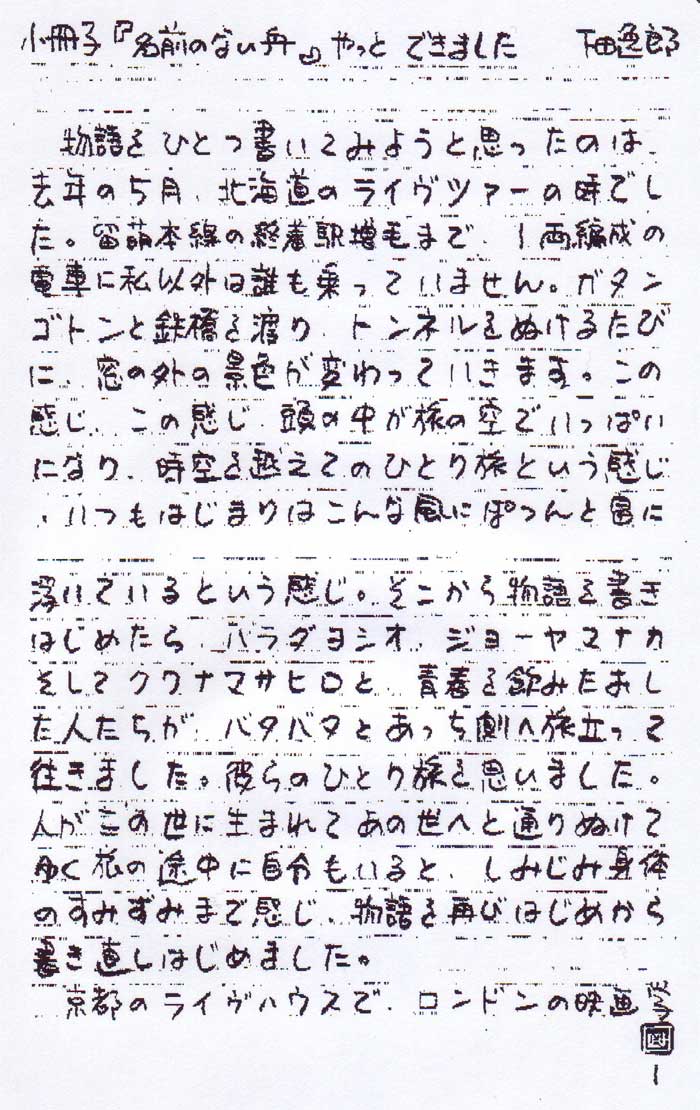 小冊子『名前のない舟』やっと できました　　下田逸郎
物語をひとつ書いてみようと思ったのは、
去年の5月、北海道のライヴツァーの時でし
た。留萌本線の終着駅増毛まで、1両編成の
電車に私以外は誰も乗っていません。ガタン
ゴトンと鉄橋を渡り、トンネルをぬけるたび
に、窓の外の景色が変わっていきます。この
感じ、この感じ、頭の中が旅の空でいっぱい
になり、時空を越えてのひとり旅という感じ
、いつもはじまりはこんな風にぽつんと宙に
浮いているという感じ。そこから物語を書き
はじめたら、ハラダヨシオ、ジョーヤマナカ
そしてクワナマサヒロと、青春を飲みたおし
た人たちが、バタバタとあっち側へ旅立って
往きました。彼らのひとり旅を思いました。
人がこの世に生まれてあの世へと通りぬけて
ゆく旅の途中に自分もいると、しみじみ身体
のすみずみまで感じ、物語を再びはじめから
書き直しはじめました。
京都のライヴハウスで、ロンドンの映画学
1